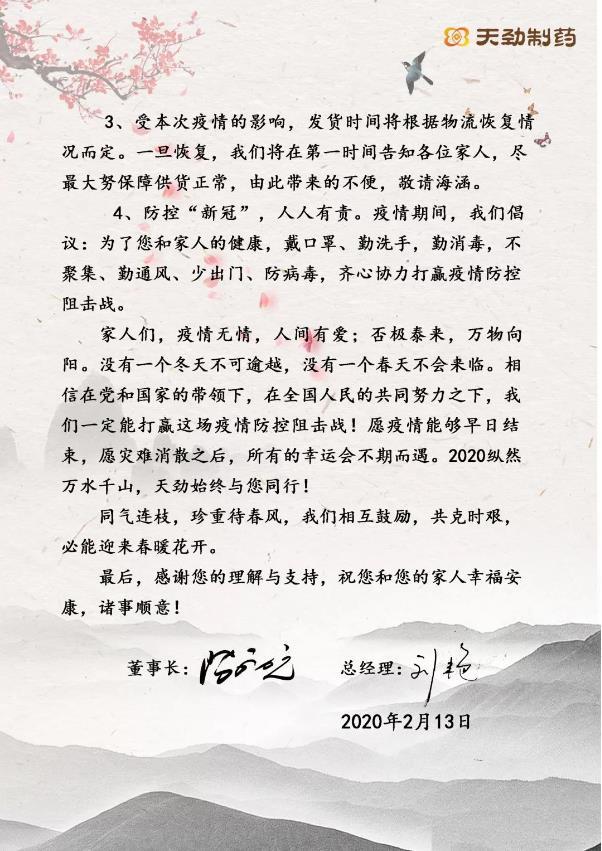 天劲制药
3、受本次疫情的影响，发货时间将根据物流恢复情
况而定。一旦恢复，我们将在第一时间告知各位家人，尽
最大努保障供货正常，由此带来的不便，敬请海涵。
4、防控“新冠”，人人有责。疫情期间，我们倡
议：为了您和家人的健康，戴口罩、勤洗手，勤消毒，不
聚集、勤通风、少出门、防病毒，齐心协力打赢疫情防控
阻击战。
家人们，疫情无情，人间有爱；否极泰来，万物向
阳。没有一个冬天不可逾越，没有一个春天不会来临。相
信在党和国家的带领下，在全国人民的共同努力之下，我
们一定能打赢这场疫情防控阻击战！愿疫情能够早日结
束，愿灾难消散之后，所有的幸运会不期而遇。2020纵然
万水千山，天劲始终与您同行！
同气连枝，珍重待春风，我们相互鼓励，共克时艰，
必能迎来春暖花开。
最后，感谢您的理解与支持，祝您和您的家人幸福安
康，诸事顺意！
董事长： 总经理：刘艳
2020年2月13日